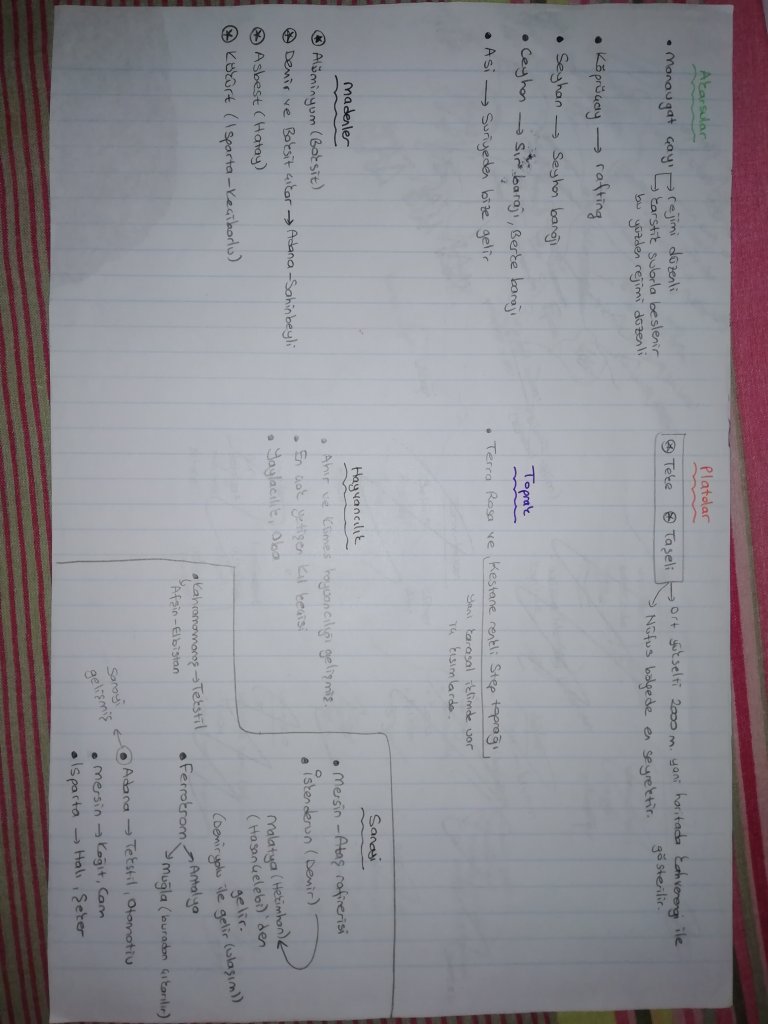 Akarsular
• Manavgat çayı → rejimi düzenli
→ karstik sularla beslenir
bu yüzden rejimi düzenli
• Köprüçay → rafting
• Seyhan → Seyhan barajı
• Ceyhan → Sır barajı, Berke barajı
• Asi → Suriyeden bize gelir
Madenler
⊛ Alüminyum (Boksit)
⊛ Demir ve Boksit çıkar → Adana-Sahinbeyli
⊛ Asbest (Hatay)
⊛ Kükürt (Isparta-Keçiborlu)
Platolar
⊛ Teke ⊛ Taşeli → Ort yükselti 2000 m yani haritada kahverengi ile
gösterilir.
→ Nüfus bölgede en seyrektir.
Toprak
• Terra Rosa ve Kestane renkli Step toprağı
yani karasal iklimde var
kısımlarda.
Hayvancılık
• Ahır ve Kümes hayvancılığı gelişmiş.
• En çok yetişen kıl keçisi
• Yaylacılık, Oba
Sanayi
• Mersin-Ataş rafinerisi
• İskenderun (Demir)
Malatya (Hekimhan)
(Hasançelebi)'den
gelir.
(Demiryolu ile gelir (ulaşım))
• Ferrokrom → Antalya
→ Muğla (buradan çıkarılır)
• Kahramanmaraş → Tekstil
Afşin-Elbistan
• Adana → Tekstil, Otomotiv
Sanayi
gelişmiş
• Mersin → Kağıt, Cam
• Isparta → Halı, Şeker